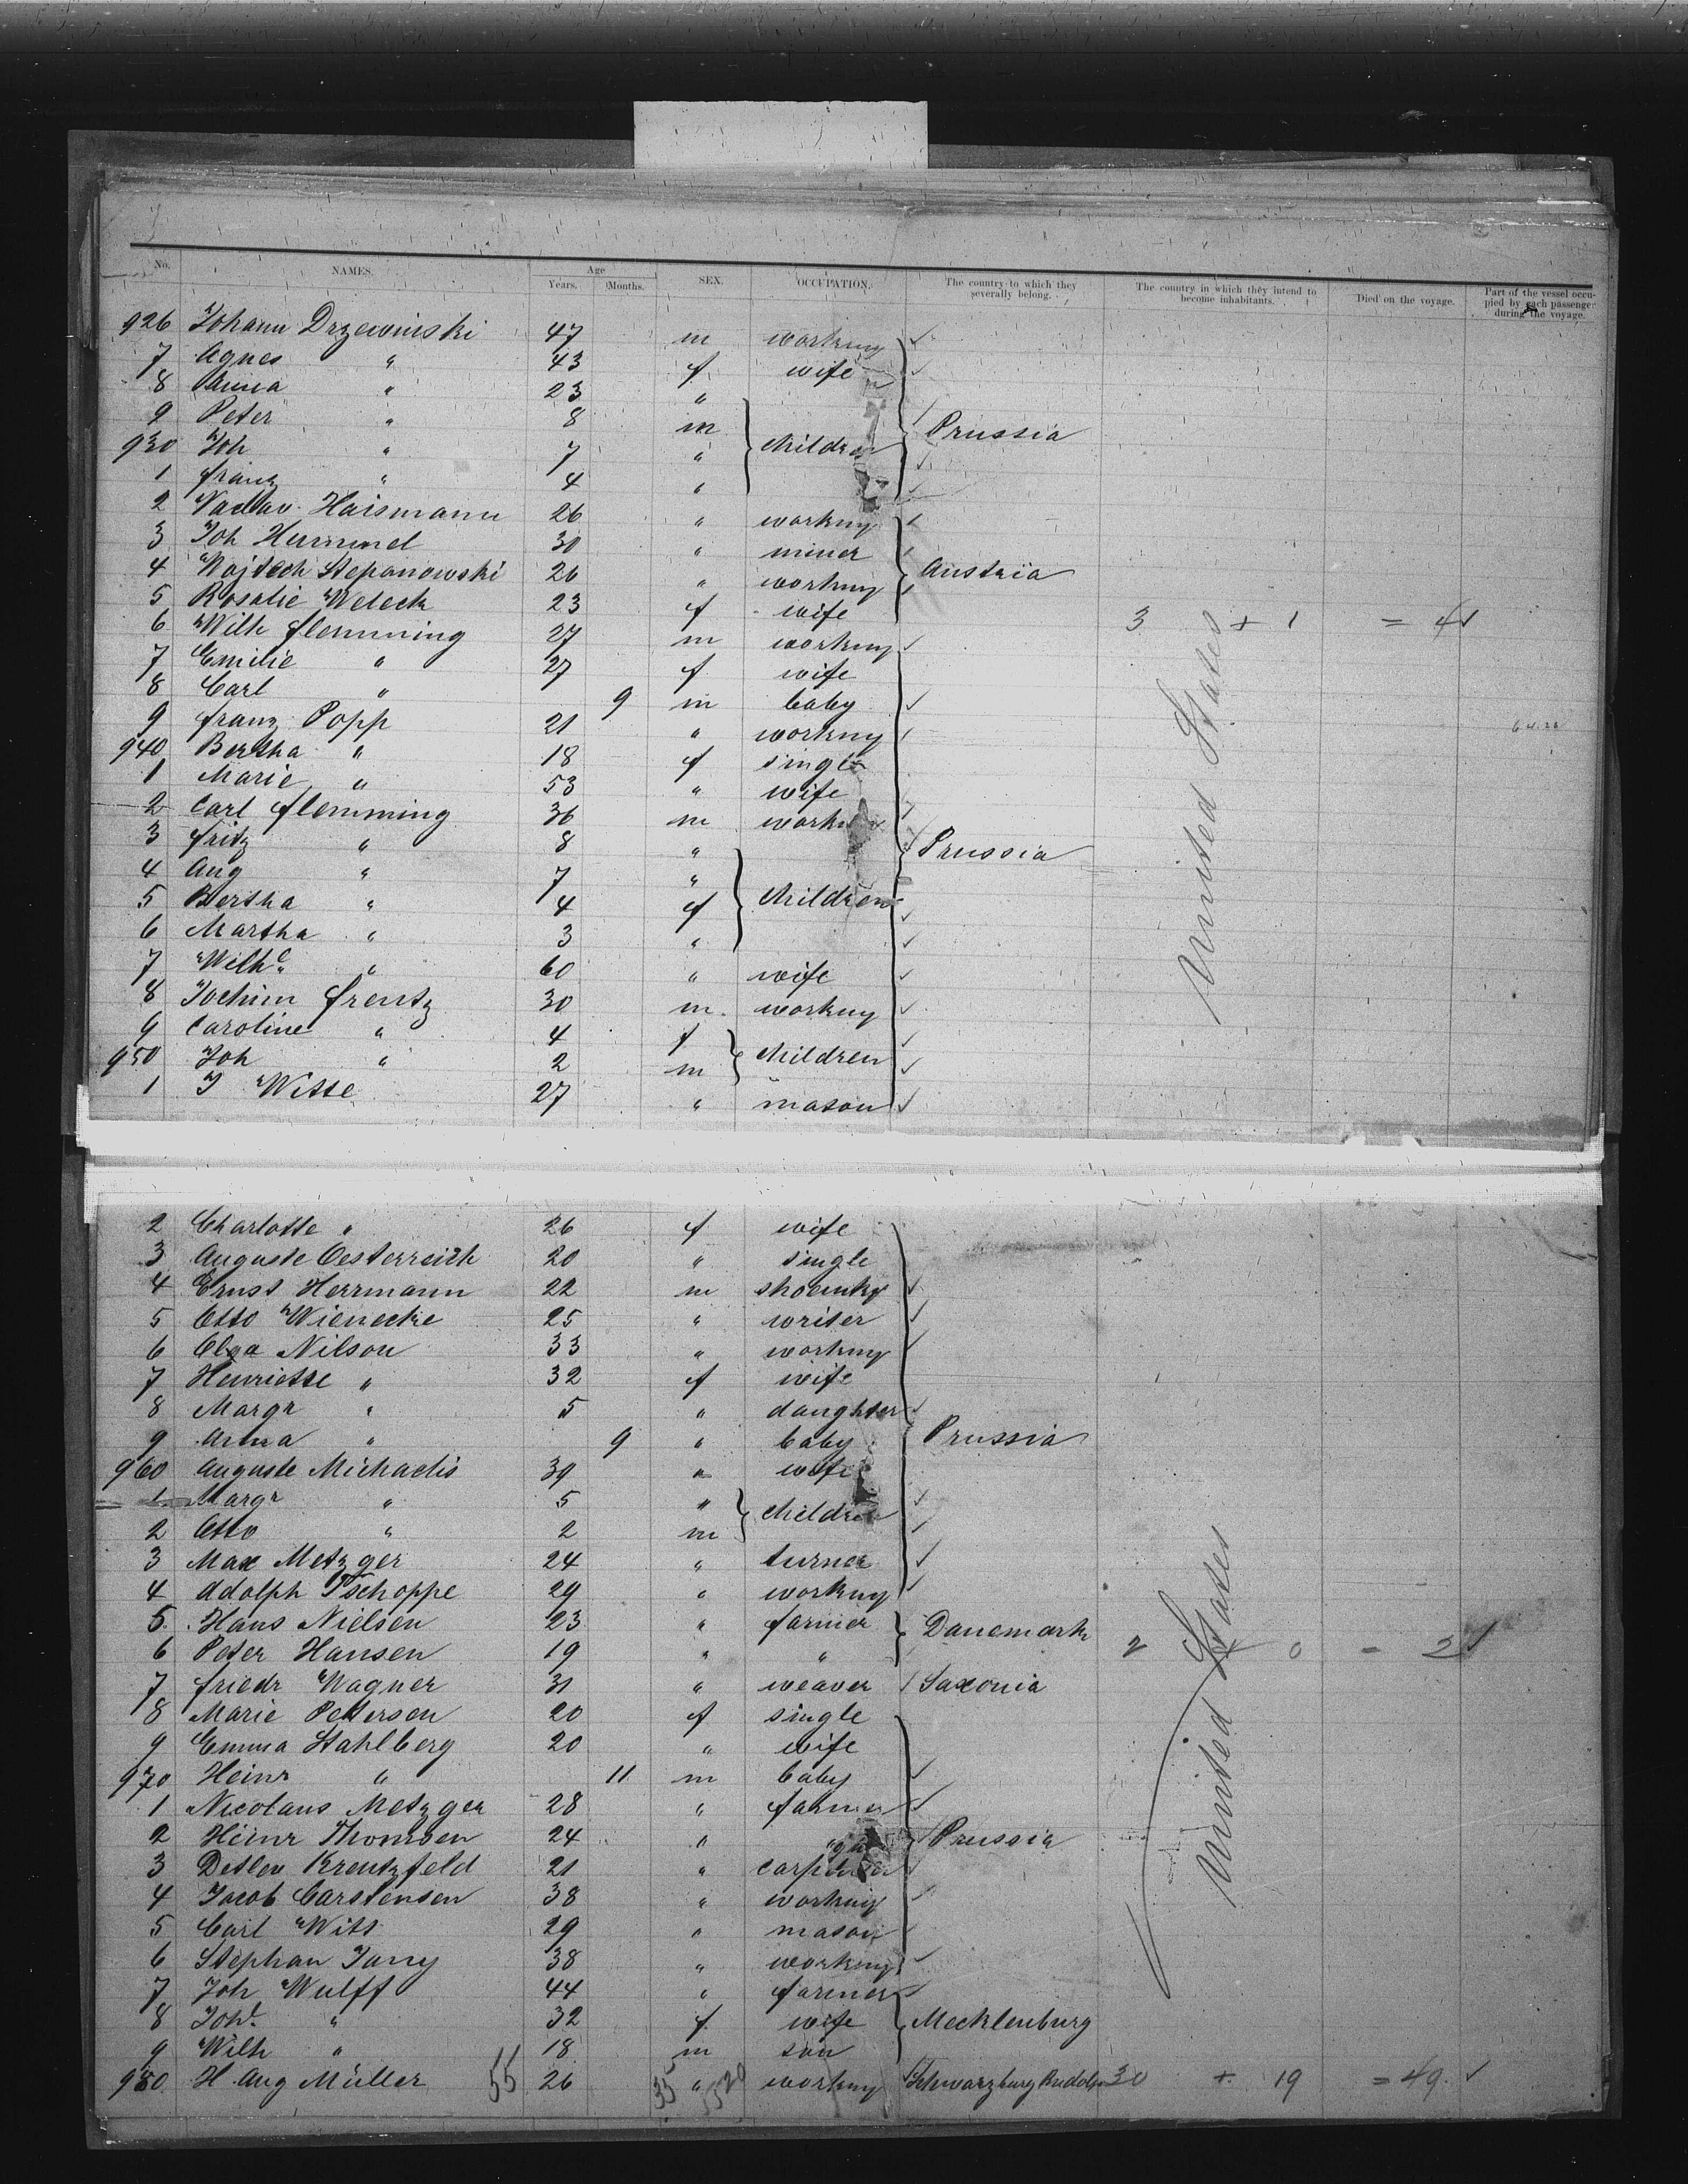 No. NAMES. Age Years. Months. SEX. OCCUPATION. The country to which they severally belong. The country in which they intend to become inhabitants. Died on the voyage. Part of the vessel occupied by each passenger during the voyage.
926 Johann Drzewinski 47 m workmg
7 Agnes " 43 f wife
8 Anna " 23 "
9 Peter " 8 m Prussia
930 Joh " 7 " children
1 Franz " 4 "
2 Vaclav Haismann 26 " workmg
3 Joh Hummel 30 " miner
4 Wojtech Stepanowski 26 " workmg Austria
5 Rosalie Weleck 23 f wife
6 Wilh Flemming 27 m workmg 3 + 1 = 4
7 Emilie " 27 f wife
8 Carl " 9 m baby
9 Franz Popp 21 " workmg
940 Bertha " 18 f single
1 Marie " 53 " wife
2 Carl Flemming 36 m workmg
3 Fritz " 8 " Prussia
4 Aug " 7 "
5 Bertha " 4 f children
6 Martha " 3 "
7 Wilhe " 60 " wife
8 Jochim Frentz 30 m workmg
9 Caroline " 4 f
950 Joh " 2 m children
1 J Witte 27 " mason
United States
2 Charlotte " 26 f wife
3 Auguste Oesterreich 20 " single
4 Ernst Herrmann 22 m shoemkr
5 Otto Wienecke 25 " writer
6 Olga Nilson 33 " workmg
7 Henriette " 32 f wife
8 Margr " 5 " daughter
9 Anna " 9 " baby Prussia
960 Auguste Michaelis 39 " wife
1 Margr " 5 " children
2 Otto " 2 m
3 Max Metzger 24 " turner
4 Adolph Tschoppe 29 " workmg
5 Hans Nielsen 23 " farmer Danemark
6 Peter Hansen 19 " " 2 0 = 2
7 Friedr Wagner 31 " weaver Saxonia
8 Marie Petersen 20 f single
9 Emma Stahlberg 20 " wife
970 Heinr " 11 m baby
1 Nicolaus Metzger 28 " farmer
2 Heinr Thomsen 24 " " Prussia
3 Detlev Kreutzfeld 21 " carpenter
4 Jacob Carstensen 38 " workmg
5 Carl Witt 29 " mason
6 Stephan Jany 38 " workmg
7 Joh Wulff 44 " farmer
8 Joh. " 32 f wife Mecklenburg
9 Wilh " 18 m son
980 H Aug Müller 55 26 35 " 20 workmg Schwarzburg Rudols 30 + 19 = 49
United States